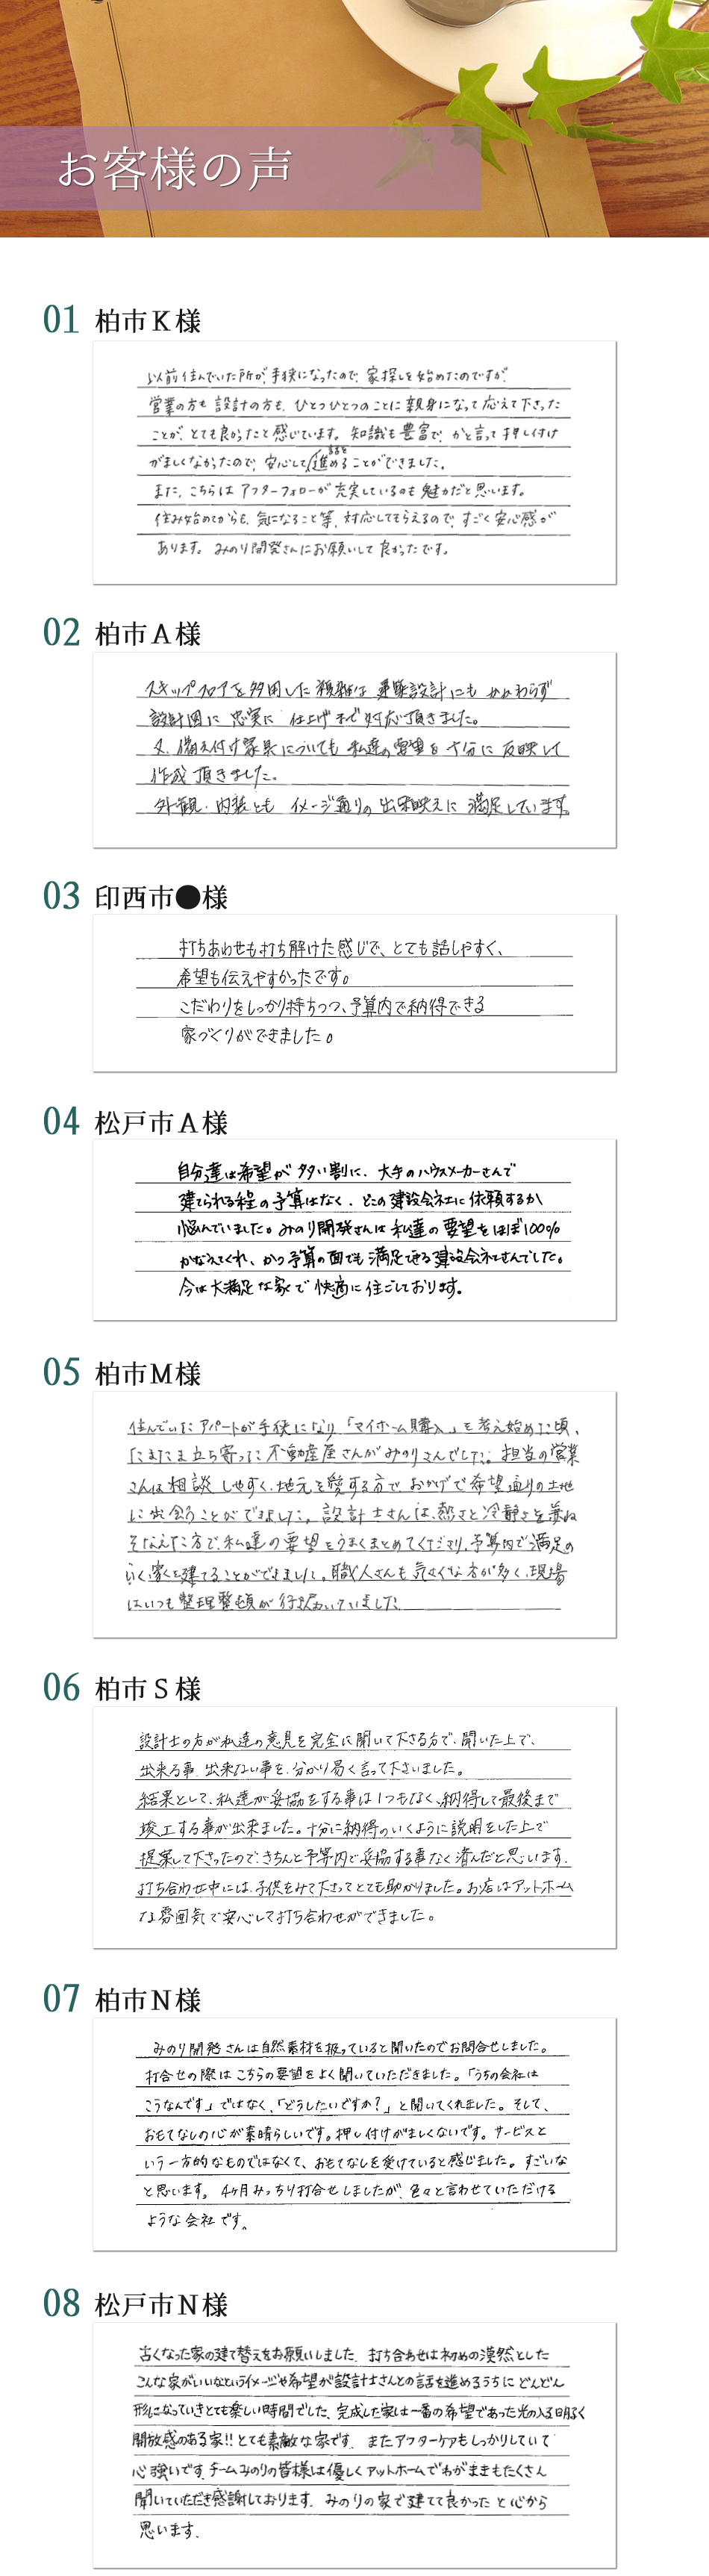 お客様の声
01 柏市K様
以前住んでいた所が、手狭になったので、家探しを始めたのですが、
営業の方も設計の方も、ひとつひとつのことに親身になって応えて下さった
ことが、とても良かったと感じています。知識も豊富で、かと言って押し付け
がましくなかったので、安心して話を進めることができました。
また、こちらはアフターフォローが充実しているのも魅力だと思います。
住み始めてからも、気になること等、対応してもらえるので、すごく安心感が
あります。みのり開発さんにお願いして良かったです。
02 柏市A様
スキップフロアを多用した複雑な建築設計にもかかわらず
設計図に忠実に仕上げまで対応頂きました。
又、備え付け家具についても私達の要望を十分に反映して
作成頂きました。
外観・内装とも イメージ通りの出来映えに満足しています。
03 印西市●様
打ちあわせも打ち解けた感じで、とても話しやすく、
希望も伝えやすかったです。
こだわりをしっかり持ちつつ、予算内で納得できる
家づくりができました。
04 松戸市A様
自分達は希望が多い割に、大手のハウスメーカーさんで
建てられる程の予算はなく、どこの建設会社に依頼するか
悩んでいました。みのり開発さんは私達の要望をほぼ100%
かなえてくれ、かつ予算の面でも満足できる建設会社さんでした。
今は大満足な家で快適に住ごしております。
05 柏市M様
住んでいたアパートが手狭になり「マイホーム購入」を考え始めた頃、
たまたま立ち寄った不動産屋さんがみのりさんでした。担当の営業
さんは相談しやすく、地元を愛する方で、おかげで希望通りの土地
に出会うことができました。設計士さんは、熱さと冷静さを兼ね
そなえた方で、私達の要望をうまくまとめてくださり、予算内で満足の
いく家を建てることができました。職人さんも気さくな方が多く、現場
はいつも整理整頓が行き届いていました
06 柏市S様
設計士の方が私達の意見を完全に聞いて下さる方で、聞いた上で、
出来る事、出来ない事を、分かり易く言って下さいました。
結果として、私達が妥協をする事は1つもなく、納得して最後まで
竣工する事が出来ました。十分に納得のいくように説明をした上で
提案して下さったので、きちんと予算内で妥協する事なく済んだと思います。
打ち合わせ中には、子供をみて下さってとても助かりました。お店はアットホーム
な雰囲気で安心して打ち合わせができました。
07 柏市N様
みのり開発さんは自然素材を扱っていると聞いたのでお問合せしました。
打合せの際はこちらの要望をよく聞いていただきました。「うちの会社は
こうなんです」ではなく、「どうしたいですか?」と聞いてくれました。そして、
おもてなしの心が素晴らしいです。押し付けがましくないです。サービスと
いう一方的なものではなくて、おもてなしを受けていると感じました。すごいな
と思います。4ヶ月みっちり打合せしましたが、色々と言わせていただける
ような会社です。
08 松戸市N様
古くなった家の建て替えをお願いしました。打ち合わせは初めの漠然とした
こんな家がいいなというイメージや希望が設計士さんとの話を進めるうちにどんどん
形になっていきとても楽しい時間でした。完成した家は一番の希望であった光の入る明るく
開放感のある家!!とても素敵な家です。またアフターケアもしっかりしていて
心強いです。チームみのりの皆様は優しくアットホームでわがままもたくさん
聞いていただき感謝しております。みのりの家で建てて良かったと心から
思います。